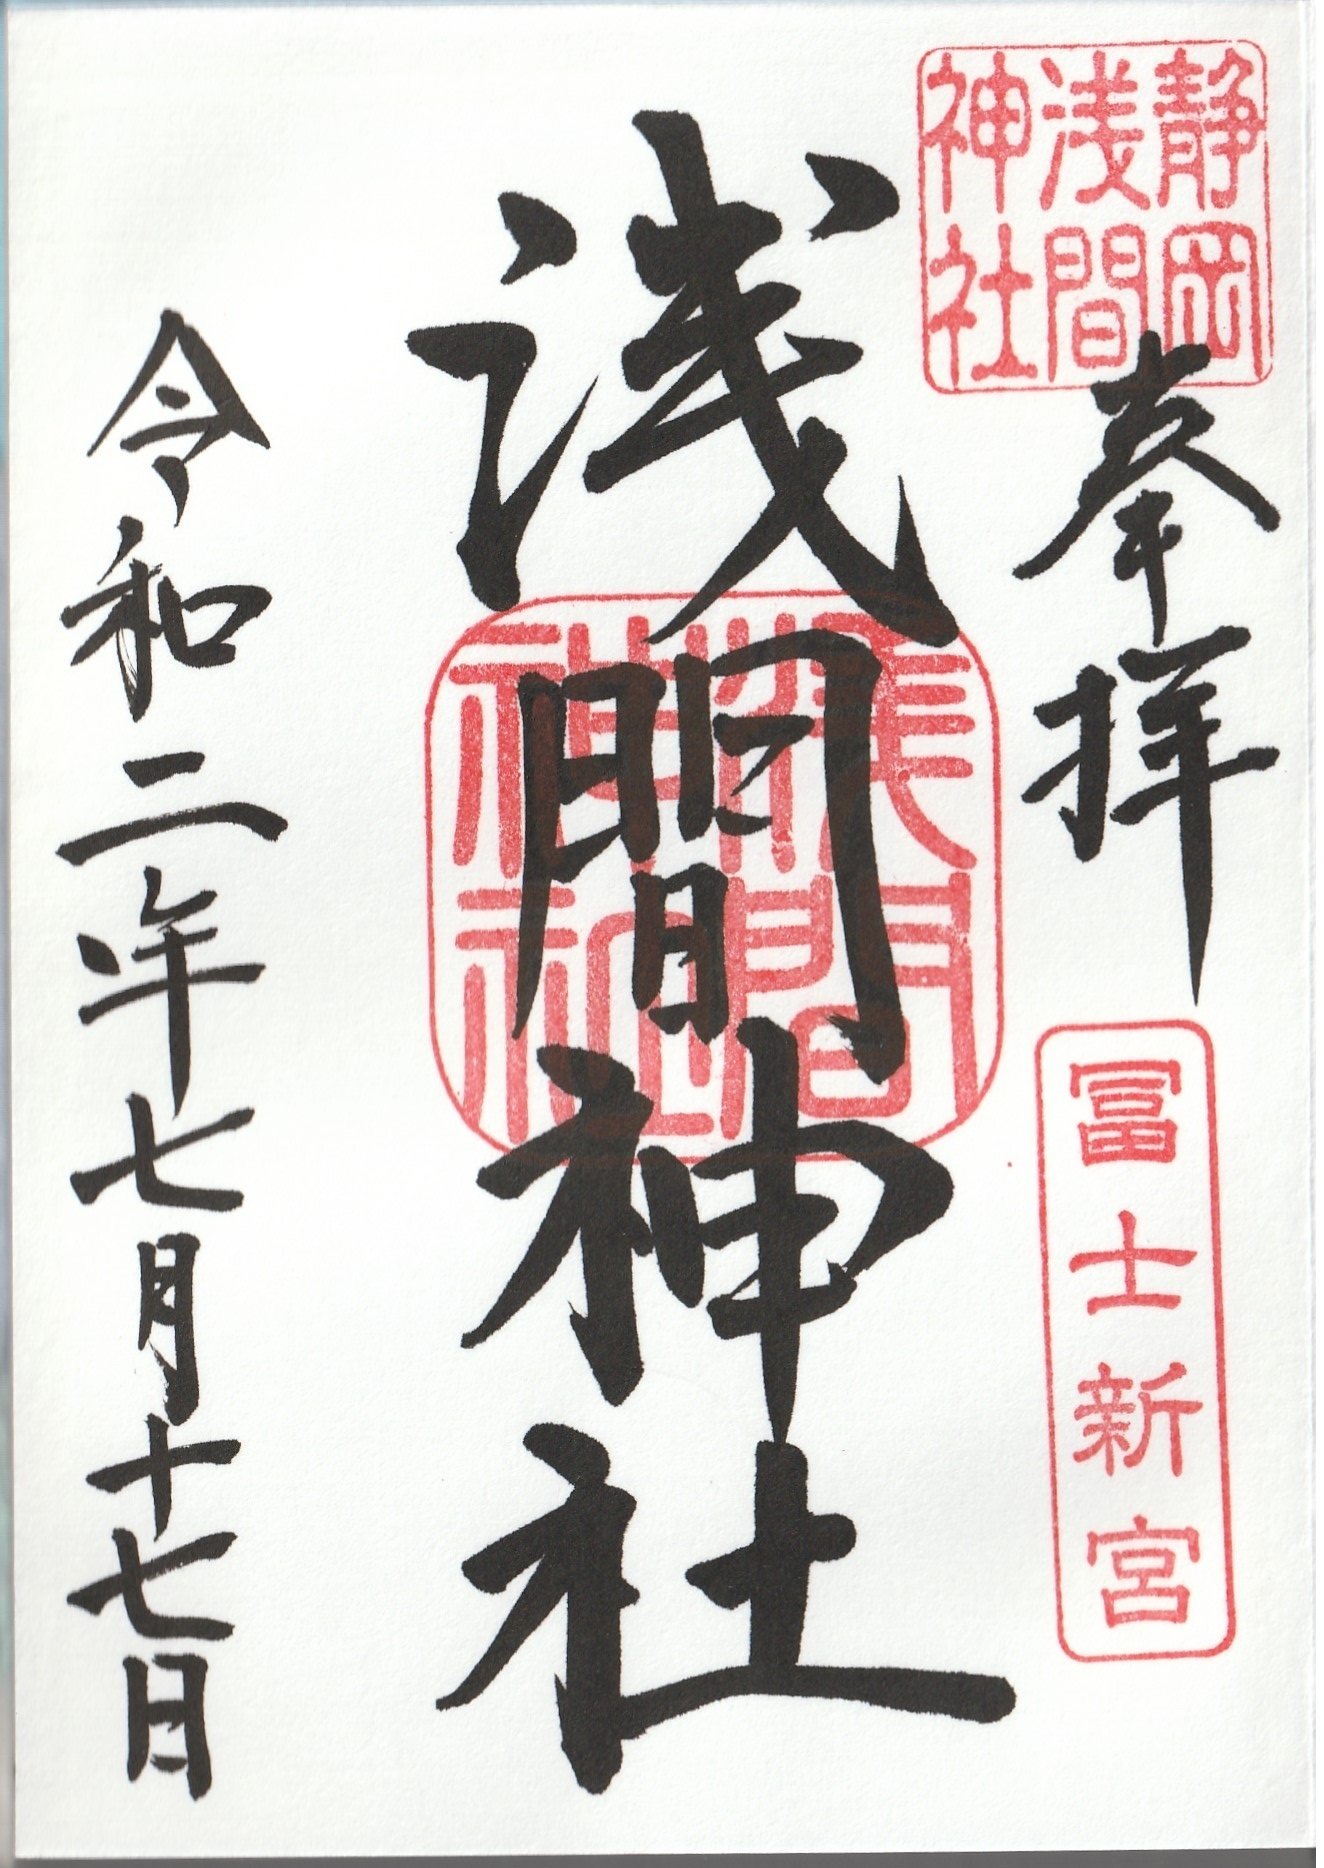 静岡
浅間
神社
奉拝
冨士新宮
浅間神社
浅間
神社
令和二年七月十七日